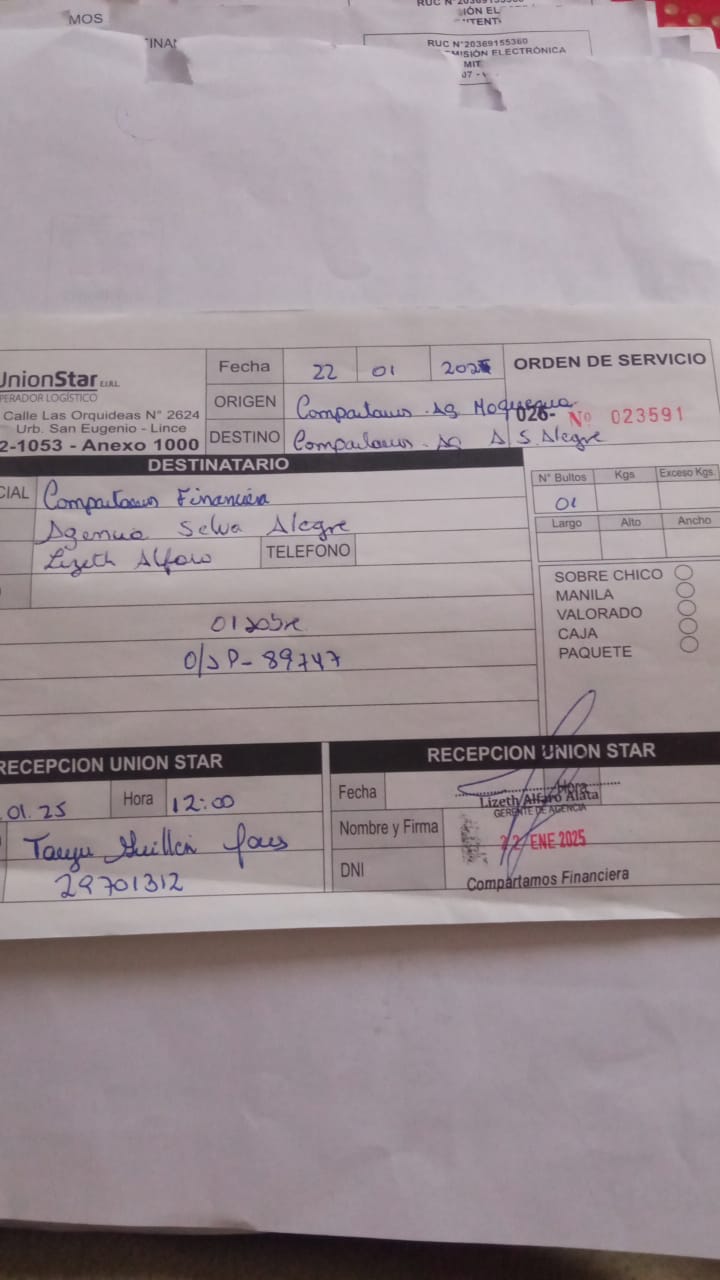 MOS
RUC N°20369155360
IÓN EL
RUC N°20369155360
MISIÓN ELECTRÓNICA
MIT
UnionStar E.I.R.L.
PERADOR LOGÍSTICO
Calle Las Orquideas N° 2624
Urb. San Eugenio - Lince
2-1053 - Anexo 1000
Fecha 22 01 2025
ORIGEN Compartamos .Ag Moquegua
DESTINO Compartamos .Ag A/S. Alegre
ORDEN DE SERVICIO
026- Nº 023591
DESTINATARIO
CIAL Compartamos Financiera
Agencia Selva Alegre
Lizeth Alfaro TELEFONO
01 sobre
O/SP- 89747
N° Bultos Kgs Exceso Kgs.
01
Largo Alto Ancho
SOBRE CHICO
MANILA
VALORADO
CAJA
PAQUETE
RECEPCION UNION STAR
.01.25 Hora 12:00
Guillen
29701312
RECEPCION UNION STAR
Fecha Hora
Lizeth Alfaro Alata
GERENTE DE AGENCIA
Nombre y Firma
22 ENE 2025
DNI
Compartamos Financiera